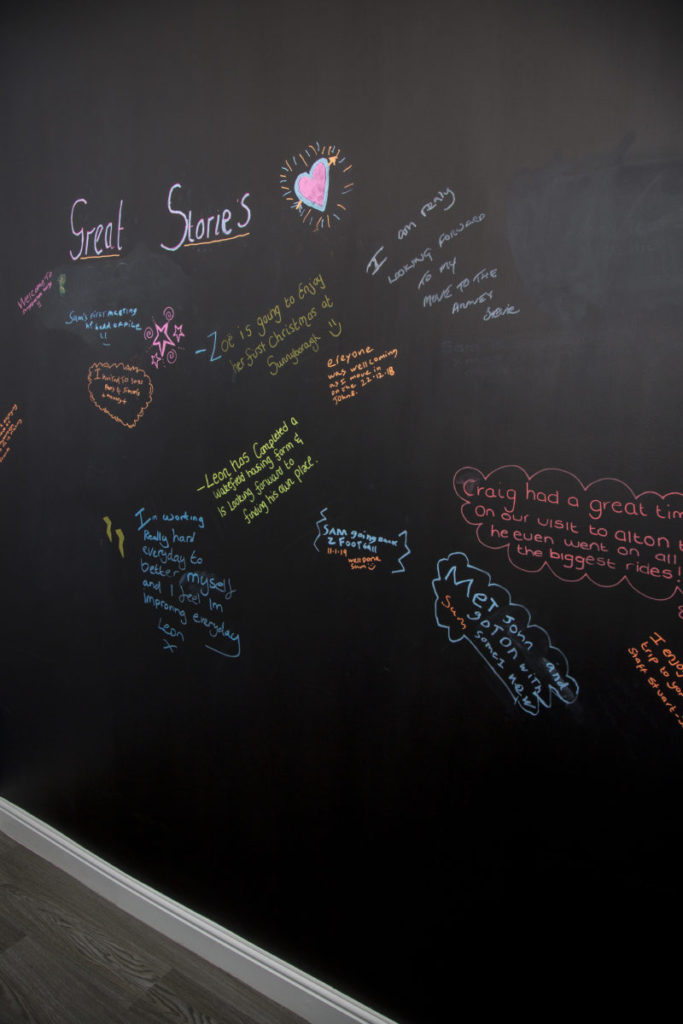 Great Storie's
I am really
LOOKING FORWARD
TO MY
MOVE TO THE
Welcome to
Sam's first meeting
- Zoë is going to Enjoy
her first Christmas at
Sunnyborough
eryone
was wellcoming
as I move in
on the 22.12.18
John E.
- Leon has Completed a
wakefield housing form &
is Looking forward to
finding his own place.
Im working
Really hard
everyday to
better myself
and I feel Im
Improving everyday
Leon
x
SAM going over
2 FOOTBALL
11-1-19 well done
Craig had a great tim
on our visit to alton t
he even went on all
the biggest rides!
MET John and
GOT ON with
some1 new
Sam
I enjoy
trip to yo
Staff Stuart